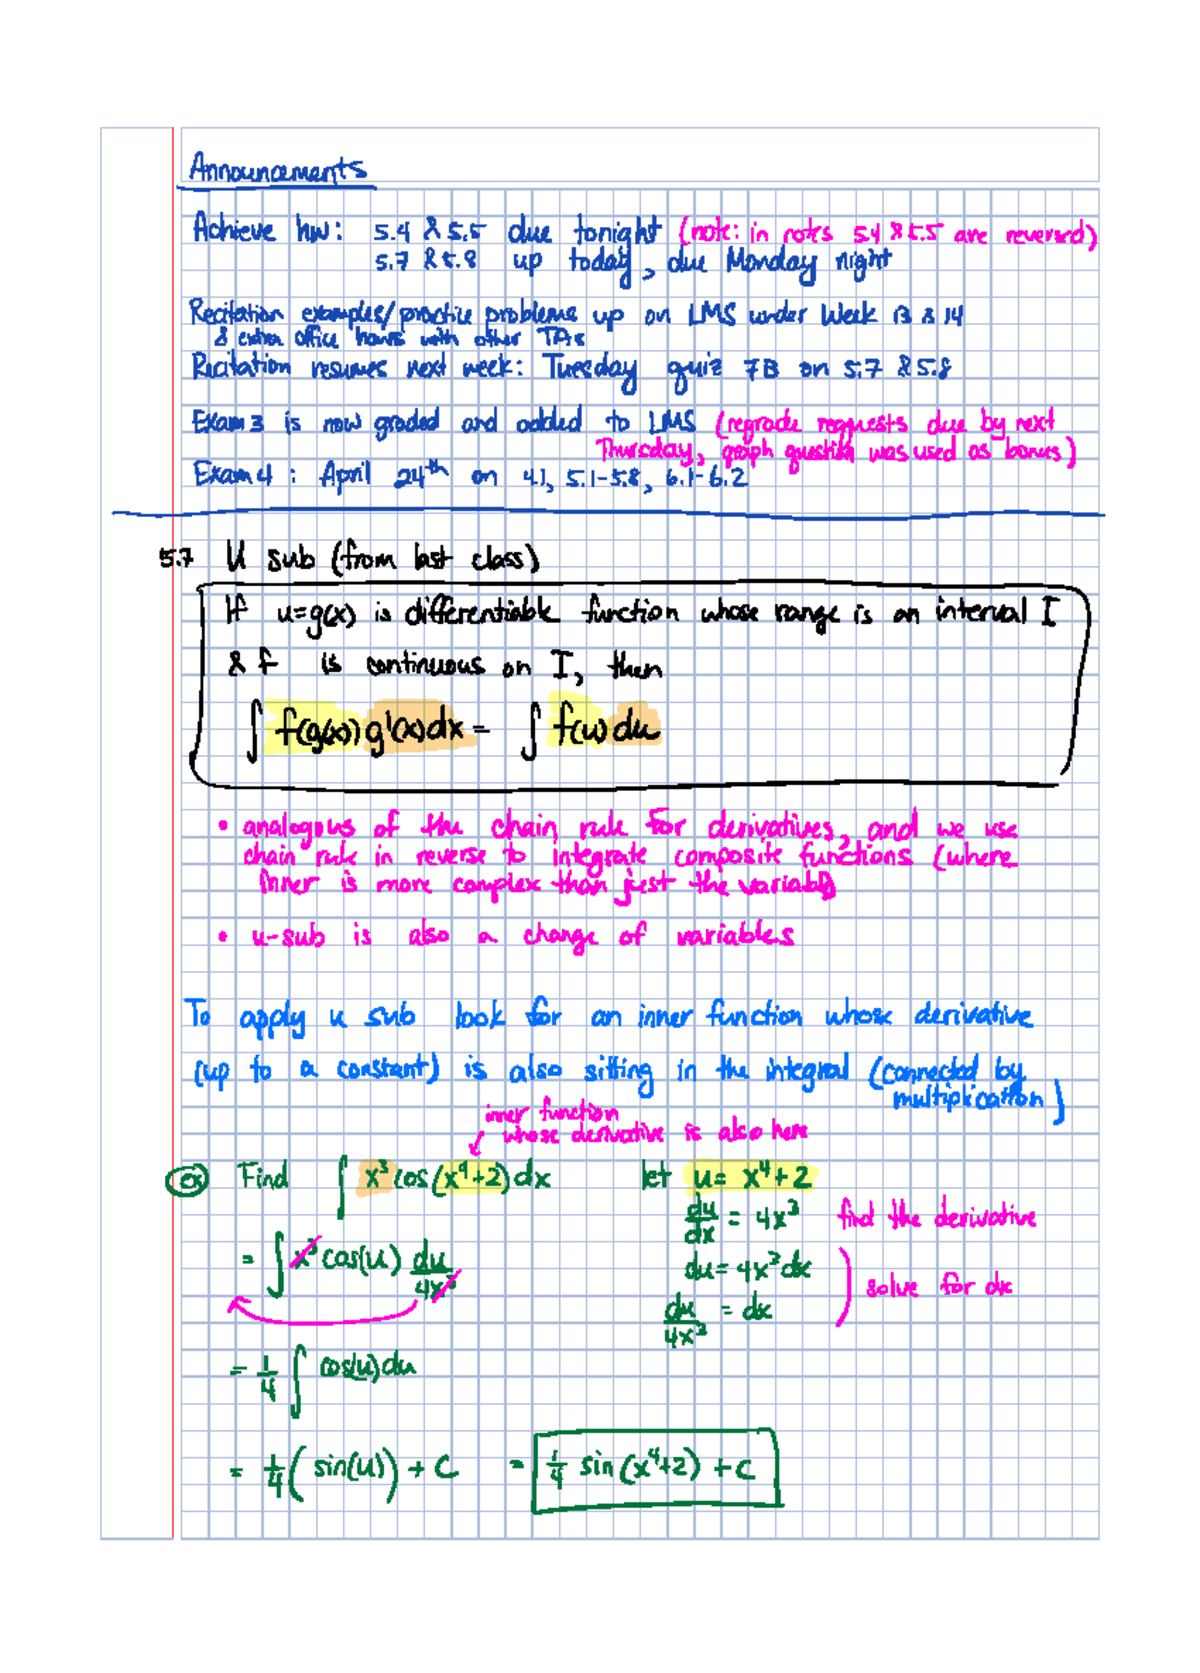 Announcements
Achieve hw: 5.4 & 5.5 due tonight (note: in notes 5.4 & 5.5 are reversed)
5.7 & 5.8 up today, due Monday night
Recitation examples/practice problems up on LMS under Week 13 & 14
& extra office hours with other TAs
Recitation resumes next week: Tuesday quiz 7B on 5.7 & 5.8
Exam 3 is now graded and added to LMS (regrade requests due by next
Thursday, graph question was used as bonus)
Exam 4 : April 24th on 4.1, 5.1-5.8, 6.1-6.2
5.7 U sub (from last class)
If u=g(x) is differentiable function whose range is an interval I
& f is continuous on I, then
∫ f(g(x)) g'(x)dx = ∫ f(u) du
• analogous of the chain rule for derivatives, and we use
chain rule in reverse to integrate composite functions (where
inner is more complex than just the variable)
• u-sub is also a change of variables
To apply u sub look for an inner function whose derivative
(up to a constant) is also sitting in the integral (connected by
multiplication)
inner function
whose derivative is also here
ex Find ∫ x³ cos(x⁴+2) dx let u = x⁴+2
du/dx = 4x³ find the derivative
= ∫ x³ cos(u) du/4x³ du = 4x³dx
solve for dx
du/4x³ = dx
= 1/4 ∫ cos(u) du
= 1/4 ( sin(u) ) + C = 1/4 sin (x⁴+2) + C